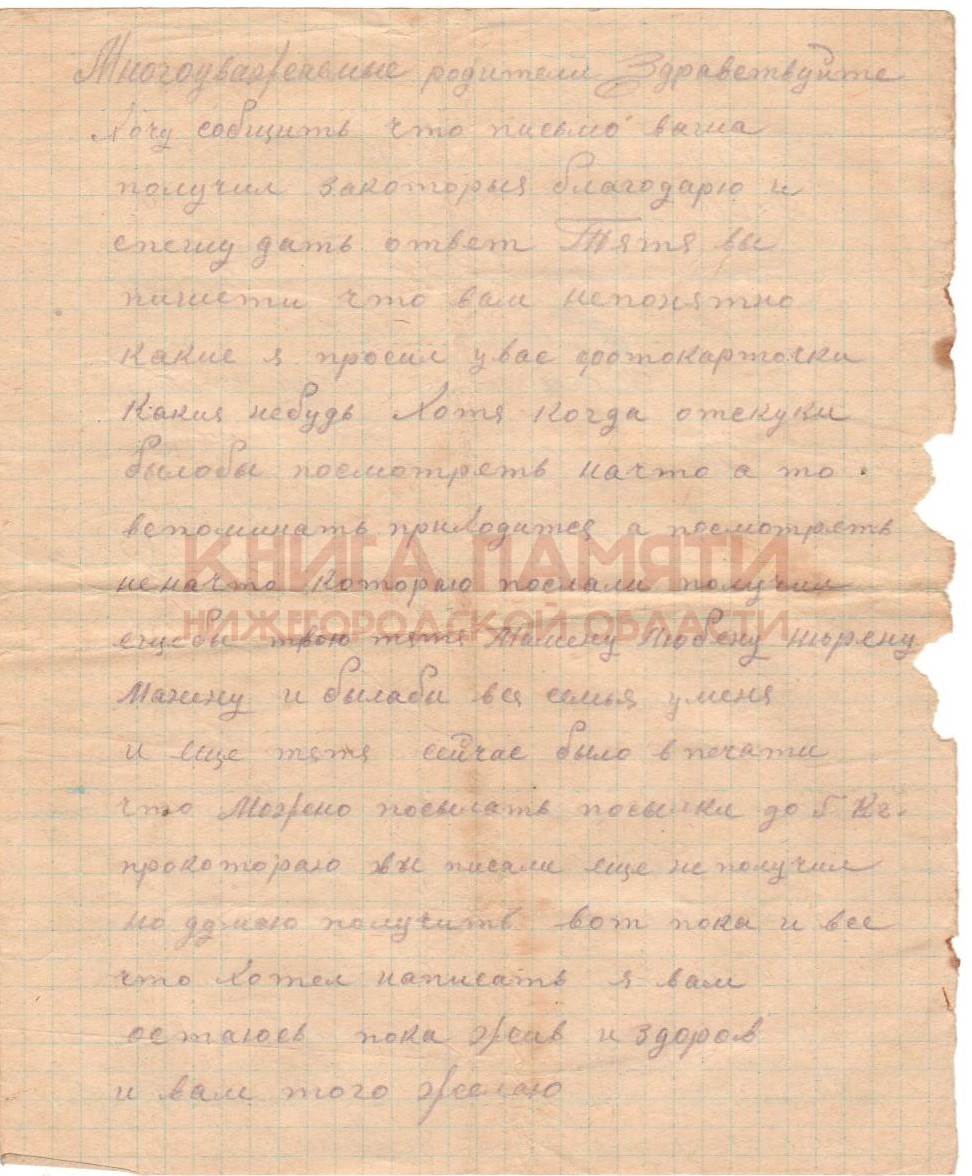 Многоуважаемые родители Здравствуйте
Хочу собщить что письмо выша
получил закоторыя благодарю и
спешу дать ответ Тятя вы
пишети что вам непонятно
Какие я просил увас фотокарточки
Какия небудь Хотя когда отскуки
былобы посмотреть начто а то
вспоминать приходится а посмотреть
неначто Котораю послали получил
КНИГА ПАМЯТИ
НИЖЕГОРОДСКОЙ ОБЛАСТИ
ещебы твою тятя Любену Нюрену
Манену и былаби вся семья уменя
и еще тятя сейчас было впечати
что Можно посылать посылки до 5 Кг.
прокотораю вы писали еще не получил
но думаю получить вот пока и все
что Хотел написать я вам
остаюсь пока жив и здоров
и вам того желаю